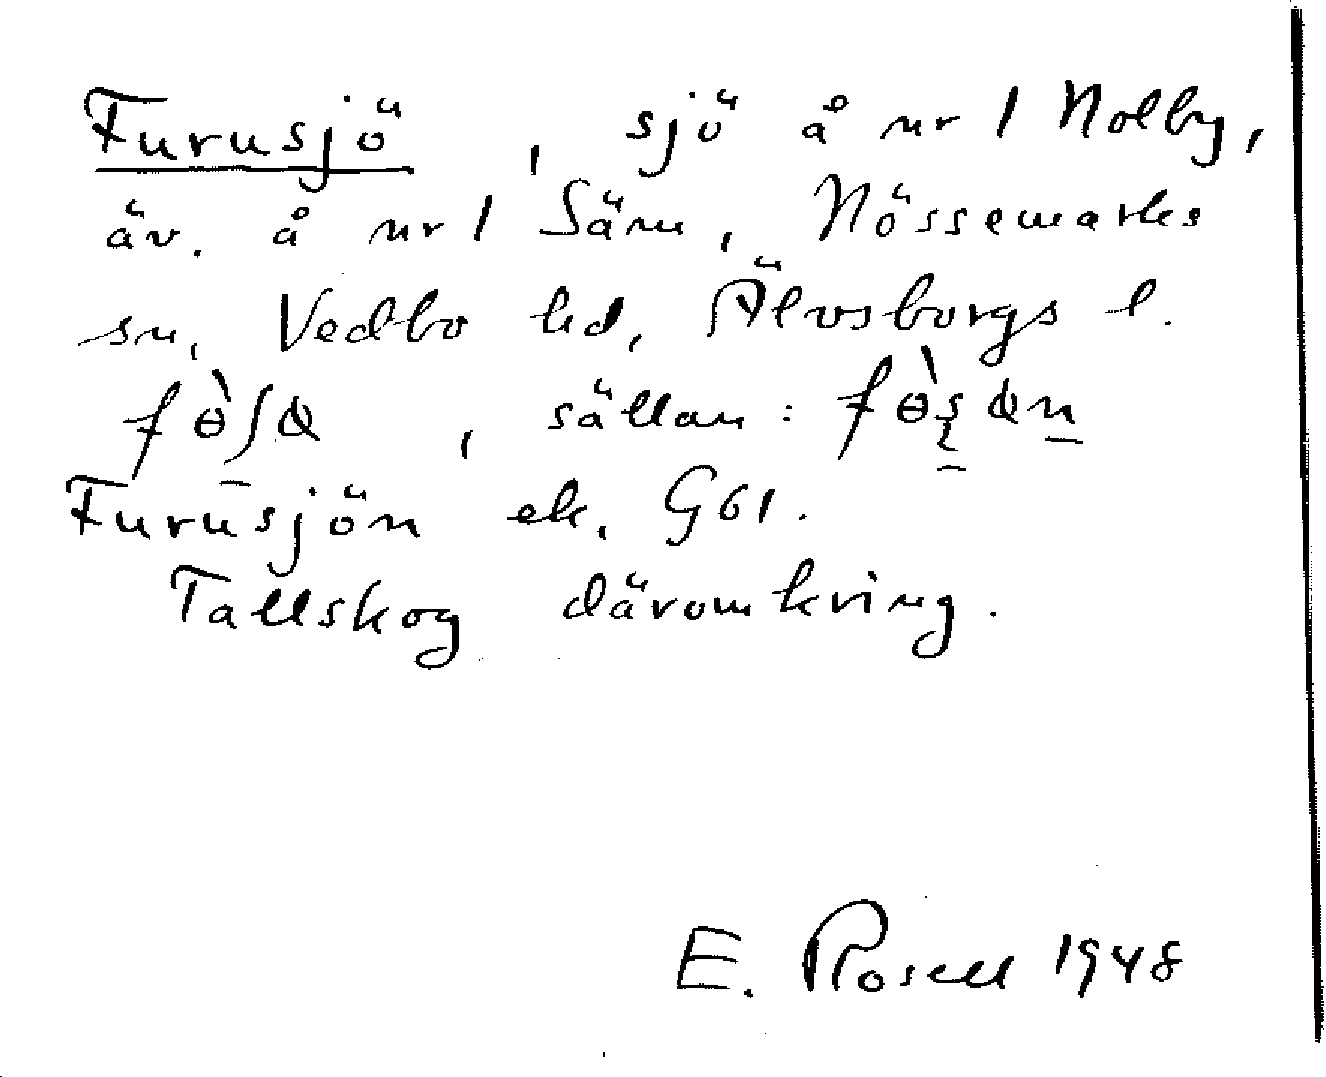 Furusjö, sjö å nr 1 Nolby,
äv. å nr 1 Säm, Nössemarks
sn, Vedbo hd, Älvsborgs l.
, sällan:
Furusjön ek. G61.
Tallskog däromkring.
E. Rosell 1948